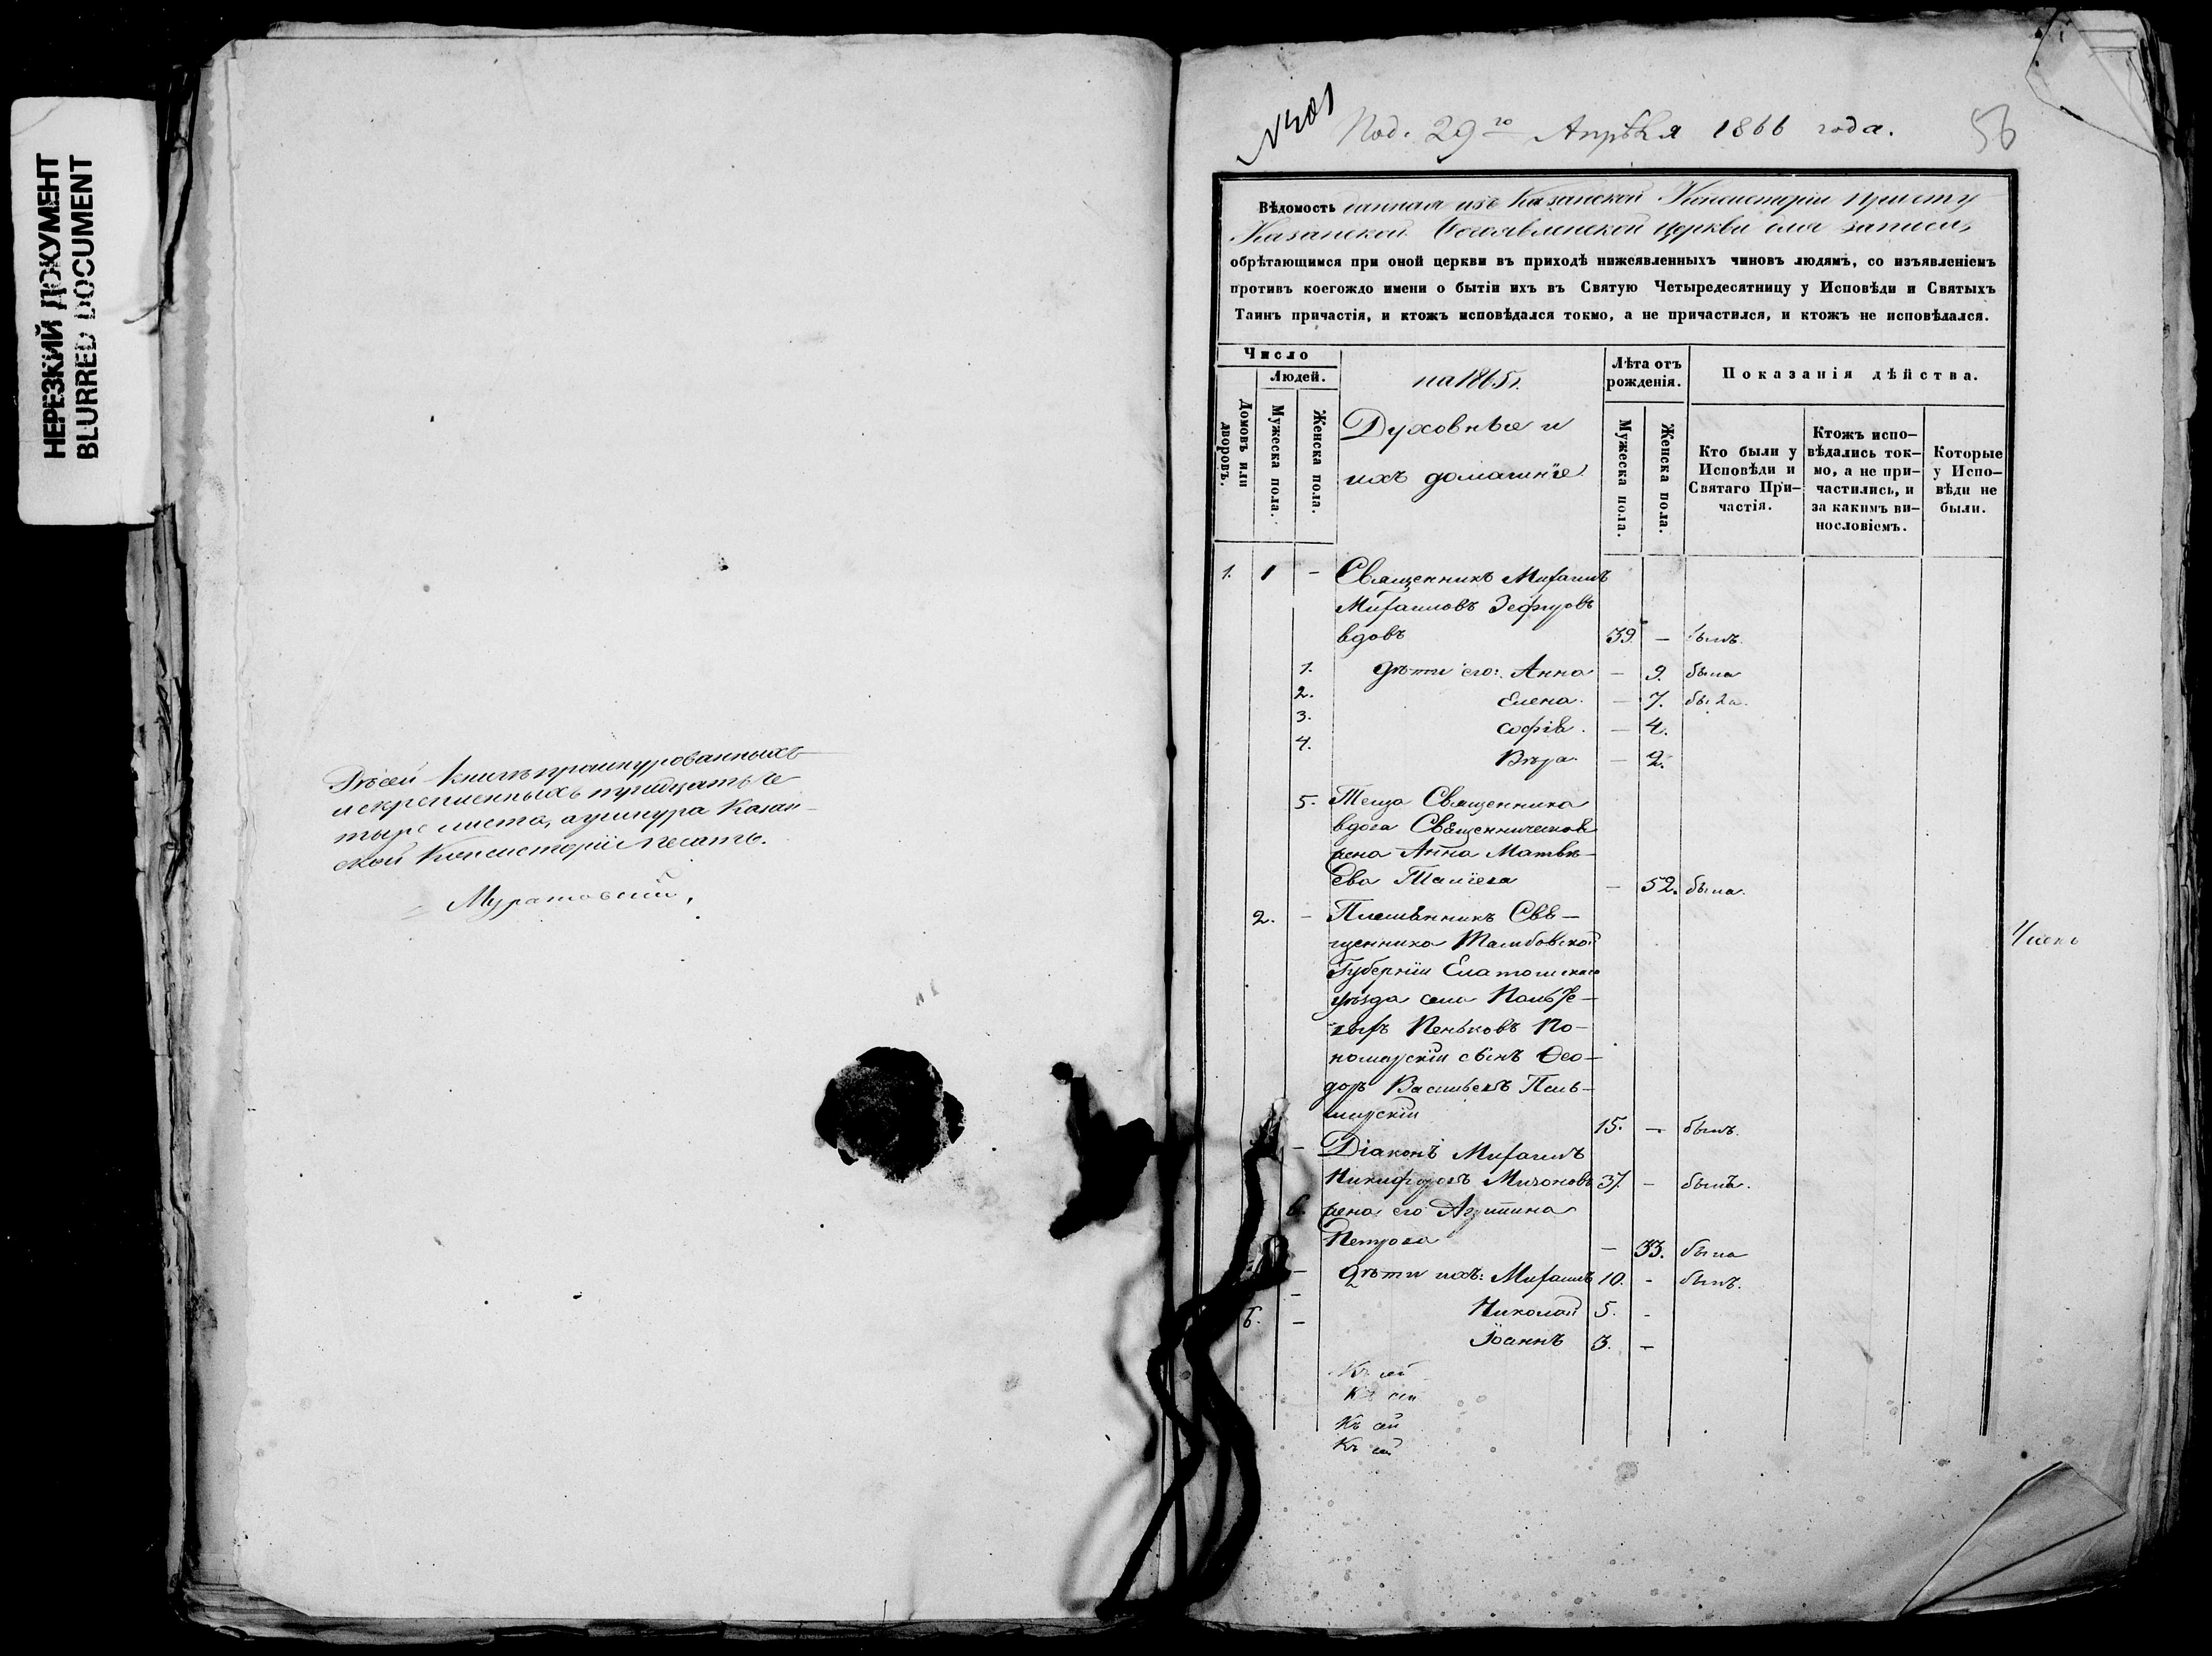 НЕРЕЗКИЙ ДОКУМЕНТ
BLURRED DOCUMENT
Въ сей книгѣ прошнурованныхъ
и скрѣпленныхъ тридцать че
тыре листа, а у шнура Казан-
ской Консисторіи печать.
Муратовскій,
№ 401
Под. 29го Апрѣля 1866 года.
56
Вѣдомость данная изъ Казанской Консисторіи причту
Казанской Богоявленской церкви для записи,
обрѣтающимся при оной церкви въ приходѣ нижеявленныхъ чиновъ людямъ, со изъявленіемъ
противъ коегождо имени о бытіи ихъ въ Святую Четыредесятницу у Исповѣди и Святыхъ
Таинъ причастія, и ктожъ исповѣдался токмо, а не причастился, и ктожъ не исповѣдался.
Число
Людей.
Домовъ или дворовъ.
Мужеска пола.
Женска пола.
на 1865 г.
Духовные и
ихъ домашніе
Лѣта отъ
рожденія.
Мужеска пола.
Женска пола.
Показанія дѣйства.
Кто были у
Исповѣди и
Святаго При-
частія.
Ктожъ испо-
вѣдались ток-
мо, а не при-
частились, и
за какимъ ви-
нословіемъ.
Которые
у Испо-
вѣди не
были.
1. 1 - Священникъ Михаилъ
Михаиловъ Зефировъ
вдовъ 39. - былъ.
1. дѣти его: Анна - 9. была
2. Елена. - 7. была.
3. Софія. - 4.
4. Вѣра. - 2.
5. Теща Священника
вдова Священническая
жена Анна Матвѣ-
ева - 52. была.
2. - Племянникъ Свя-
щенника Тамбовской
Губерніи Елатомскаго
уѣзда села
Пеньковъ По-
номарскій сынъ Ѳео-
доръ Васильевъ Паль-
мирскій 15. - былъ.
- Діаконъ Михаилъ
Никифоровъ 37. - былъ.
6. жена его
Петрова - 33. была
- Дѣти ихъ: Михаилъ 10. - былъ.
- Николай 5. -
6. - Іоаннъ 3. -
Къ сей
Къ сей
Къ сей
Къ сей